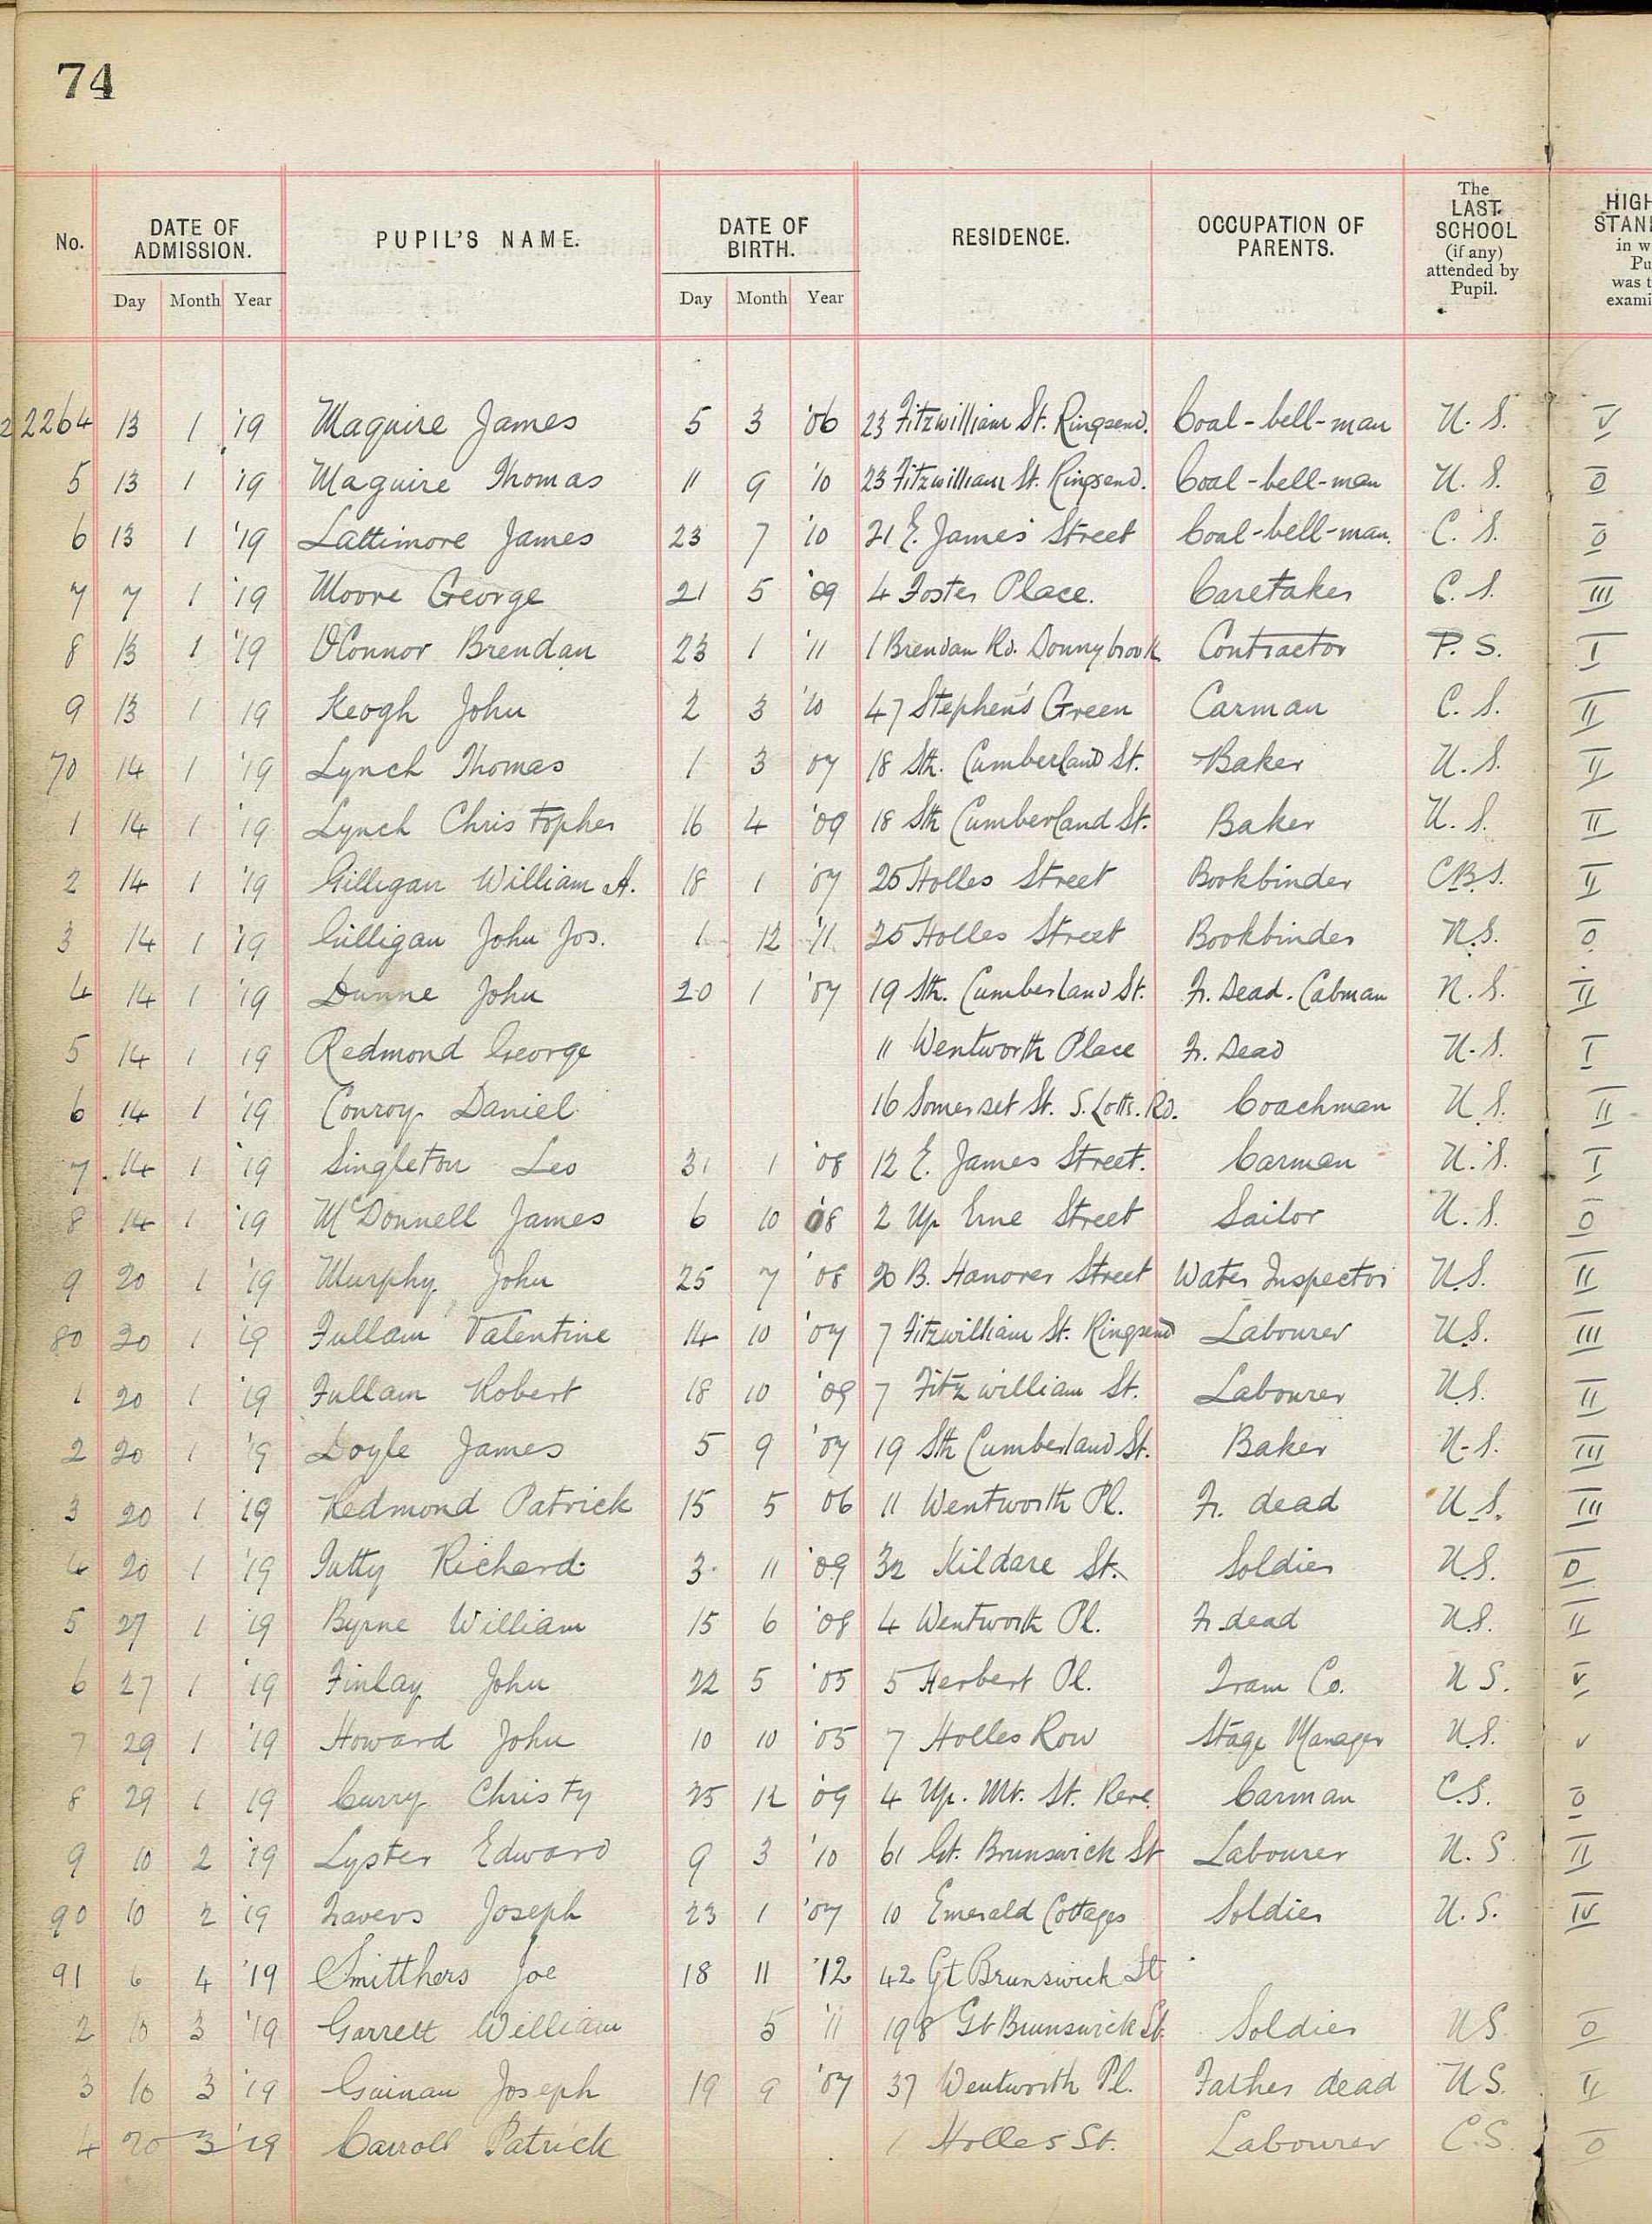 74
No. DATE OF ADMISSION. PUPIL'S NAME. DATE OF BIRTH. RESIDENCE. OCCUPATION OF PARENTS. The LAST SCHOOL (if any) attended by Pupil. HIGH STAN in w Pu was t exami
Day Month Year Day Month Year
2264 13 1 '19 Maguire James 5 3 '06 23 Fitzwilliam St. Ringsend. Coal-bell-man N.S. V
5 13 1 '19 Maguire Thomas 11 9 '10 23 Fitzwilliam St. Ringsend. Coal-bell-man N.S. 0
6 13 1 '19 Lattimore James 23 7 '10 21 E. James Street Coal-bell-man. C.S. 0
7 7 1 '19 Moore George 21 5 '09 4 Foster Place. Caretaker C.S. III
8 13 1 '19 O'Connor Brendan 23 1 '11 1 Brendan Rd. Donnybrook Contractor P.S. I
9 13 1 19 Keogh John 2 3 '10 47 Stephen's Green Carman C.S. II
70 14 1 '19 Lynch Thomas 1 3 07 18 Sth. Cumberland St. Baker N.S. II
1 14 1 '19 Lynch Christopher 16 4 '09 18 Sth Cumberland St. Baker N.S. II
2 14 1 '19 Gilligan William A. 18 1 '07 25 Holles Street Bookbinder C.B.S. II
3 14 1 '19 Gilligan John Jos. 1 12 '11 25 Holles Street Bookbinder N.S. 0
4 14 1 '19 Dunne John 20 1 '07 19 Sth. Cumberland St. Fr. Dead. Cabman N.S. II
5 14 1 19 Redmond George 11 Wentworth Place Fr. Dead N.S. I
6 14 1 '19 Conroy Daniel 16 Somerset St. S. Lotts. Rd. Coachman N.S. II
7 14 1 '19 Singleton Leo 31 1 '08 12 E. James Street. Carman N.S. I
8 14 1 '19 McDonnell James 6 10 08 2 Up Erne Street Sailor N.S. 0
9 20 1 '19 Murphy John 25 7 '08 20 B. Hanover Street Water Inspector N.S. II
80 20 1 '19 Fullam Valentine 14 10 '07 7 Fitzwilliam St. Ringsend Labourer N.S. III
1 20 1 '19 Fullam Robert 18 10 '09 7 Fitzwilliam St. Labourer N.S. II
2 20 1 '19 Doyle James 5 9 '07 19 Sth Cumberland St. Baker N.S. III
3 20 1 '19 Redmond Patrick 15 5 06 11 Wentworth Pl. Fr. dead N.S. III
4 20 1 '19 Tutty Richard 3 11 '09 32 Kildare St. Soldier N.S. 0
5 27 1 '19 Byrne William 15 6 '08 4 Wentworth Pl. Fr. dead N.S. II
6 27 1 '19 Finlay John 22 5 '05 5 Herbert Pl. Tram Co. N.S. V
7 29 1 '19 Howard John 10 10 '05 7 Holles Row Stage Manager N.S. V
8 29 1 19 Curry Christy 25 12 '09 4 Up. Mt. St. Carman C.S. 0
9 10 2 '19 Lyster Edward 9 3 '10 61 Gt. Brunswick St Labourer N.S. II
90 10 2 '19 Travers Joseph 23 1 '07 10 Emerald Cottages Soldier N.S. IV
91 6 4 '19 Smitthers Joe 18 11 '12 42 Gt Brunswick St
2 10 3 '19 Garrett William 5 '11 198 Gt Brunswick St. Soldier N.S. 0
3 10 3 '19 Guinan Joseph 19 9 '07 37 Wentworth Pl. Father dead N.S. II
4 20 3 '19 Carroll Patrick 1 Holles St. Labourer C.S. 0